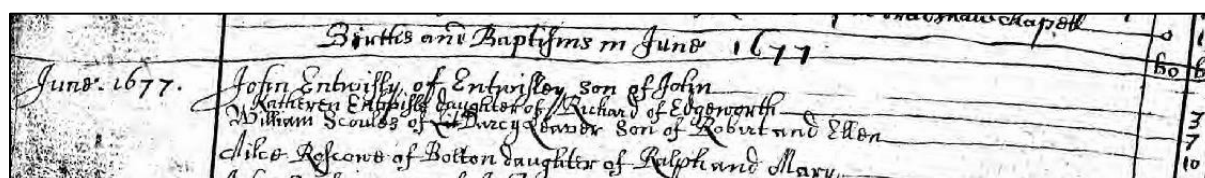 Bradshaw Chapell
Births and Baptisms in June 1677
60
June. 1677. John Entwisly of Entwisley son of John
Katheren Entwisle daughter of Richard of Edgeworth 3
William Scoules of Darcy Leaver son of Robert and Ellen 7
Alice Roscowe of Bolton daughter of Ralph and Mary 10